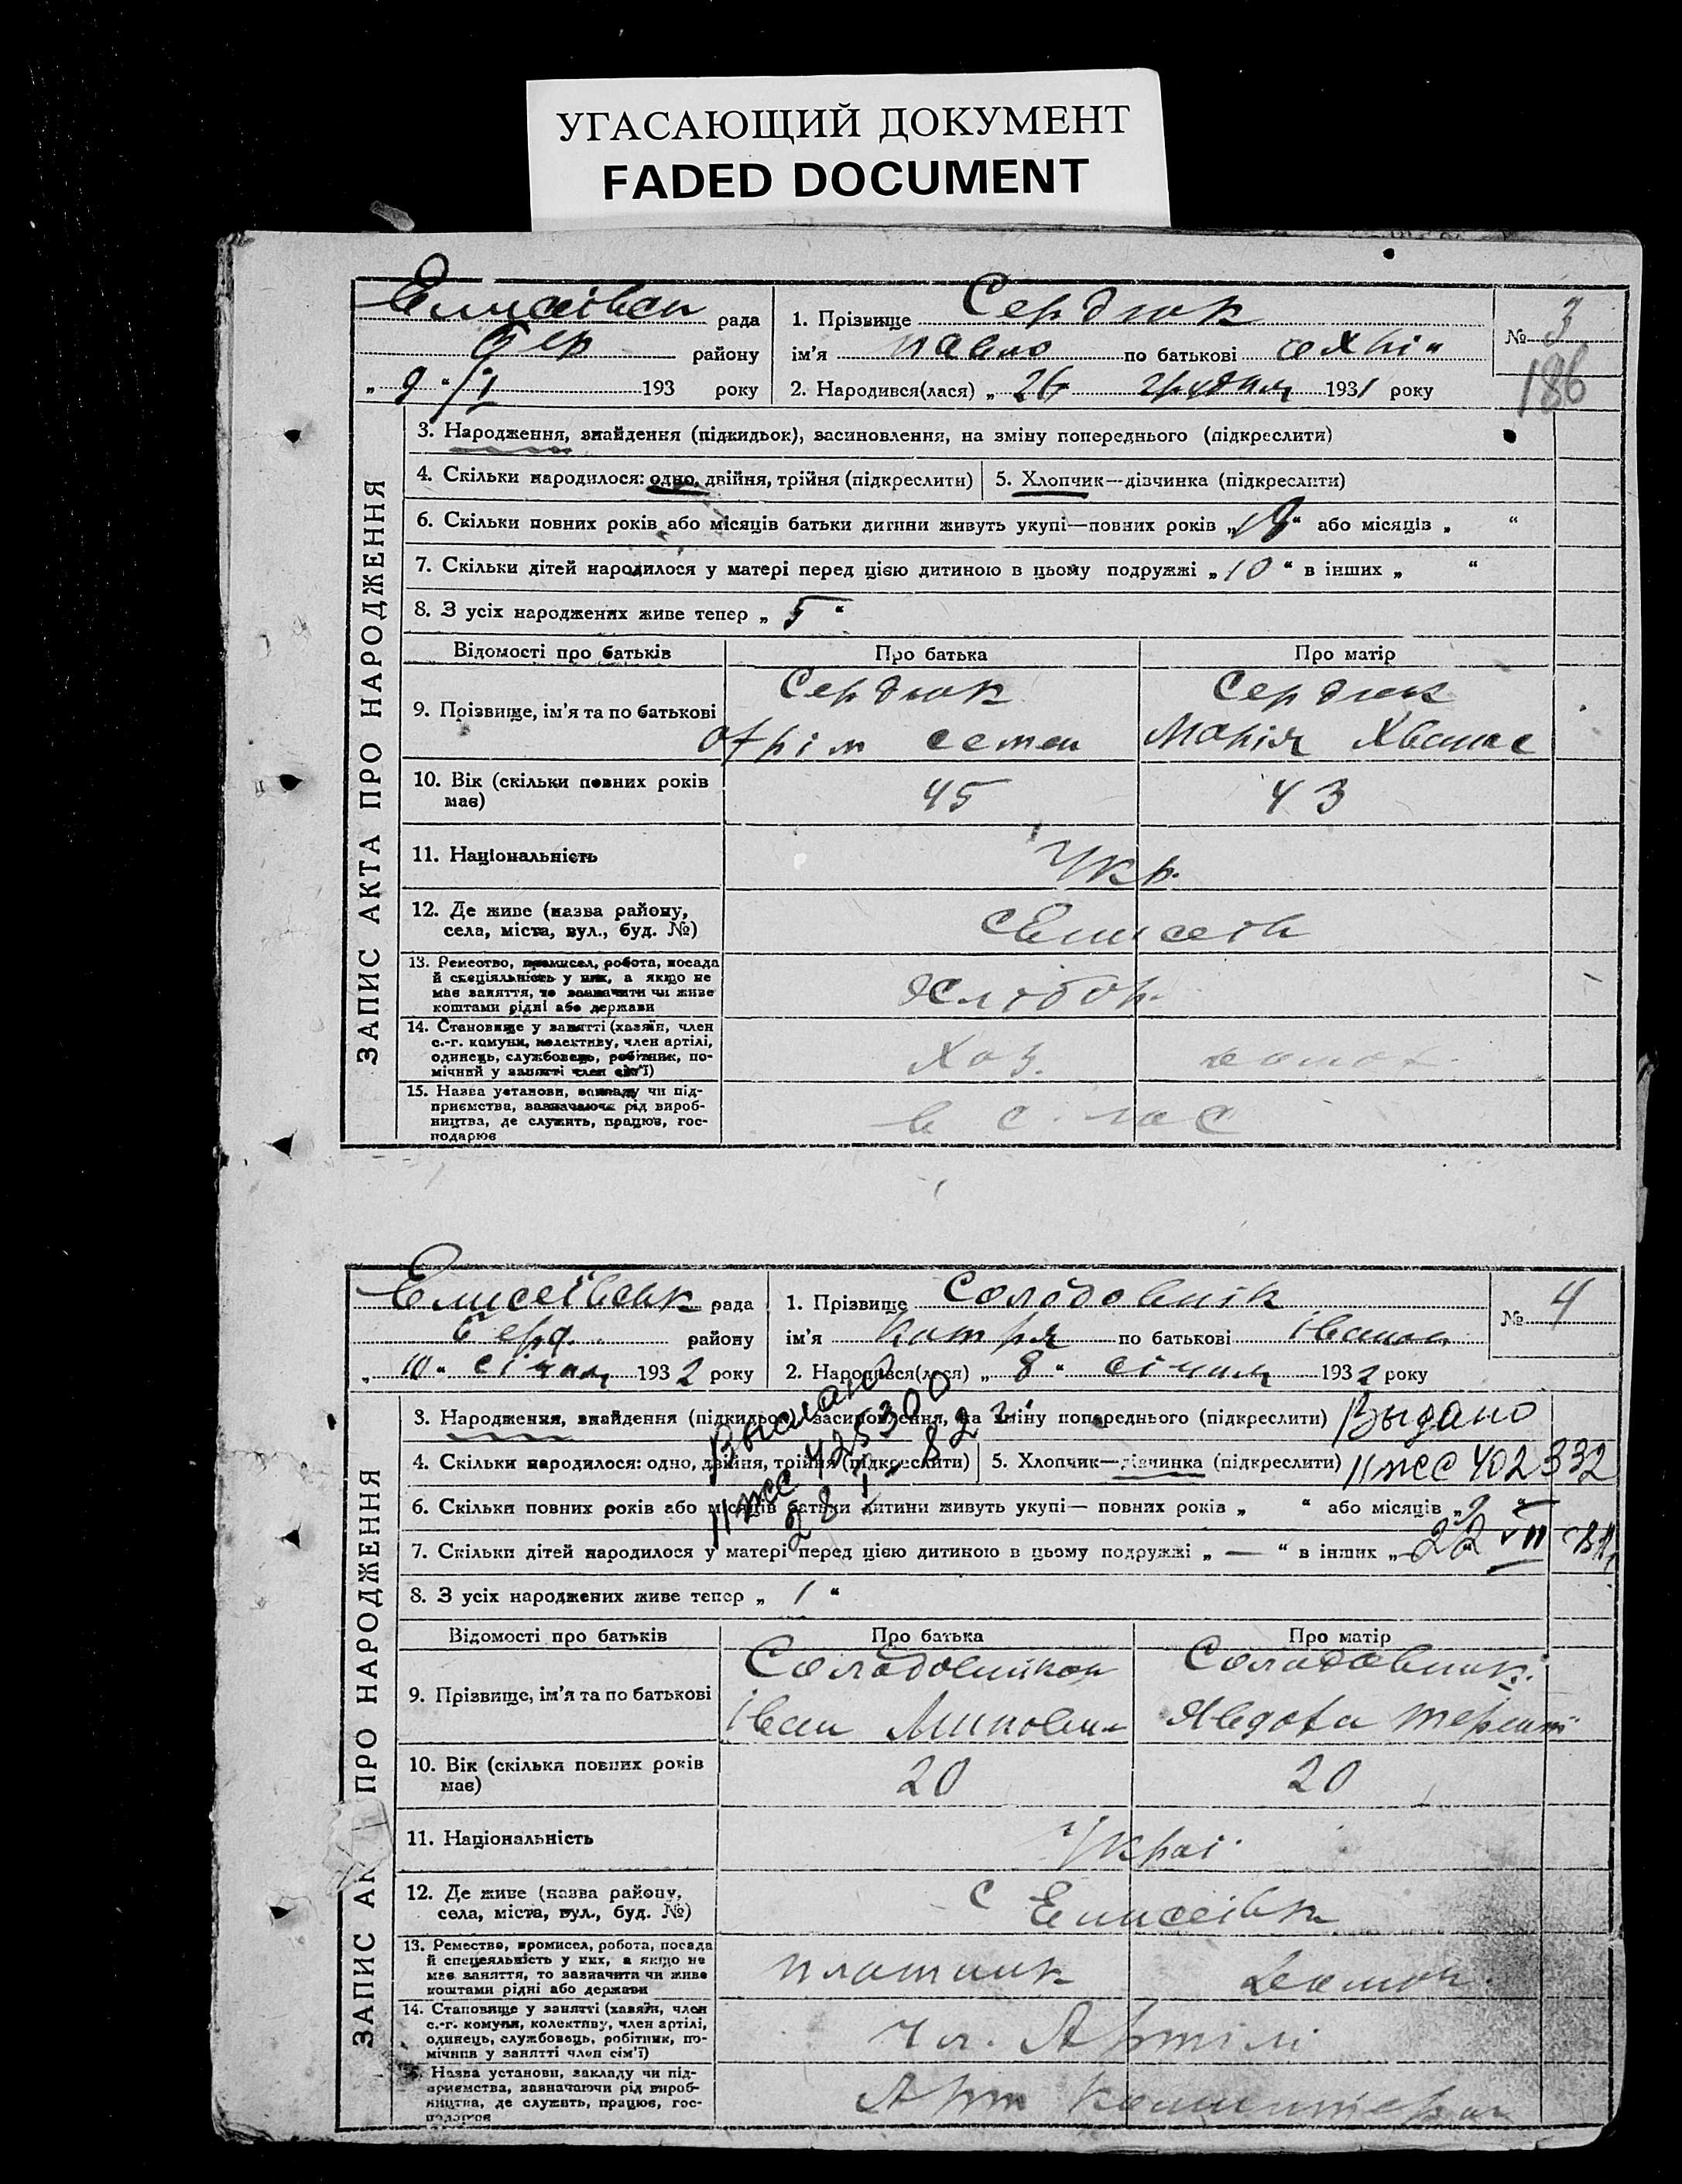 УГАСАЮЩИЙ ДОКУМЕНТ
FADED DOCUMENT
рада
району
„ 9 “ /I 193 року
1. Прізвище Сердюк
ім'я Павло по батькові
2. Народився(лася) „ 26 грудня 1931 року
№ 3
186
ЗАПИС АКТА ПРО НАРОДЖЕННЯ
3. Народження, знайдення (підкидьок), засиновлення, на зміну попереднього (підкреслити)
4. Скільки народилося: одно, двійня, трійня (підкреслити)
5. Хлопчик—дівчинка (підкреслити)
6. Скільки повних років або місяців батьки дитини живуть укупі—повних років „ “ або місяців „ “
7. Скільки дітей народилося у матері перед цією дитиною в цьому подружжі „ 10 “ в інших „ “
8. З усіх народжених живе тепер „ 5 “
Відомості про батьків Про батька Про матір
9. Прізвище, ім'я та по батькові
Сердюк Сердюк
семен Марія
10. Вік (скільки повних років має)
45 43
11. Національність
Укр.
12. Де живе (назва району,
села, міста, вул., буд. №)
13. Ремество, промисел, робота, посада
й спеціяльність у них, а якщо не
має заняття, то зазначити чи живе
коштами рідні або держави
Хлібор.
14. Становище у занятті (хазяїн, член
с.-г. комуни, колективу, член артілі,
одинець, службовець, робітник, по-
мічний у занятті член сім'ї)
Хоз.
15. Назва установи, закладу чи під-
приємства, зазначаючи рід вироб-
ництва, де служить, працює, гос-
подарює
Елисеївськ рада
Берд. району
„ 10 “ січня 1932 року
1. Прізвище Солодовнік
ім'я Катря по батькові іванов
2. Народився(лася) „ 8 “ січня 1932 року
№ 4
ЗАПИС АК ПРО НАРОДЖЕННЯ
3. Народження, знайдення (підкидьок), засиновлення, на зміну попереднього (підкреслити)
Выдано
4. Скільки народилося: одно, двійня, трійня (підкреслити)
5. Хлопчик—дівчинка (підкреслити)
II ЖС 402332
Выслано
II ЖС 425300
28 I 82
6. Скільки повних років або місяців батьки дитини живуть укупі— повних років „ “ або місяців „
7. Скільки дітей народилося у матері перед цією дитиною в цьому подружжі „ — “ в інших „
22 VII
8. З усіх народжених живе тепер „ 1 “
Відомості про батьків Про батька Про матір
9. Прізвище, ім'я та по батькові
Солодовник
іван Явдоха
10. Вік (скільки повних років має)
20 20
11. Національність
Украї.
12. Де живе (назва району,
села, міста, вул., буд. №)
с Елисеівк
13. Ремество, промисел, робота, посада
й спецеяльність у них, а якщо не
має заняття, то зазначити чи живе
коштами рідні або держави
плотник
14. Становище у занятті (хазяїн, член
с.-г. комуни, колективу, член артілі,
одинець, службовець, робітник, по-
мічник у занятті член сім'ї)
чл. Артілі
15. Назва установи, закладу чи під-
приємства, зазначаючи рід вироб-
ництва, де служить, працює, гос-
подарює
Арт